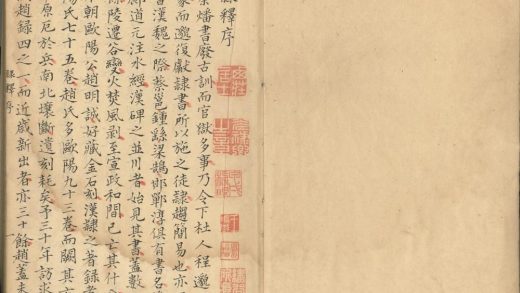 釋序
燔書廢古訓而官獄多事乃令下杜人程邈
篆而邈復獻隸書所以施之徒隸趨簡易也亦
漢魏之際蔡邕鍾繇梁鵠邯鄲淳俱有書名
酈道元注水經漢碑之並川者始見其書蓋數
陵遷谷變火焚風剥至宣政和間已亡其什
朝歐陽公趙明誠好藏金石刻漢隸之著錄者
陽氏七十五卷趙氏多歐陽九十三卷而闕其
原厄於兵南北壤斷遺刻耗矣予三十年訪求
趙錄四之一而近歲新出者亦三十餘趙蓋未
隸釋序